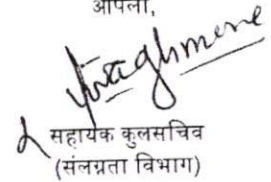 आपला,
सहायक कुलसचिव
(संलग्नता विभाग)